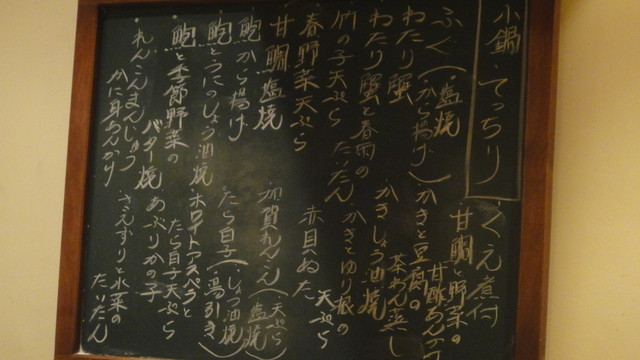 小鍋・てっちり
ふぐ(塩焼
から揚げ)
わたり蟹
わたり蟹と春雨の
竹の子天ぷら
春野菜天ぷら
甘鯛塩焼
鮑から揚げ
鮑とうにのしょう油焼
鮑と季節野菜の
バター焼
れんこんまんじゅう
かに身あんかけ
くえ煮付
甘鯛と野菜の
甘酢あんかけ
かきと豆腐の
茶わん蒸し
かきしょう油焼
かきとゆり根の
天ぷら
たいたん
赤貝のぬた
加賀れんこん(天ぷら
塩焼)
たら白子(しょう油焼
湯引き)
・ホワイトアスパラと
たら白子天ぷら
あぶりかの子
・さえずりと水菜の
たいたん